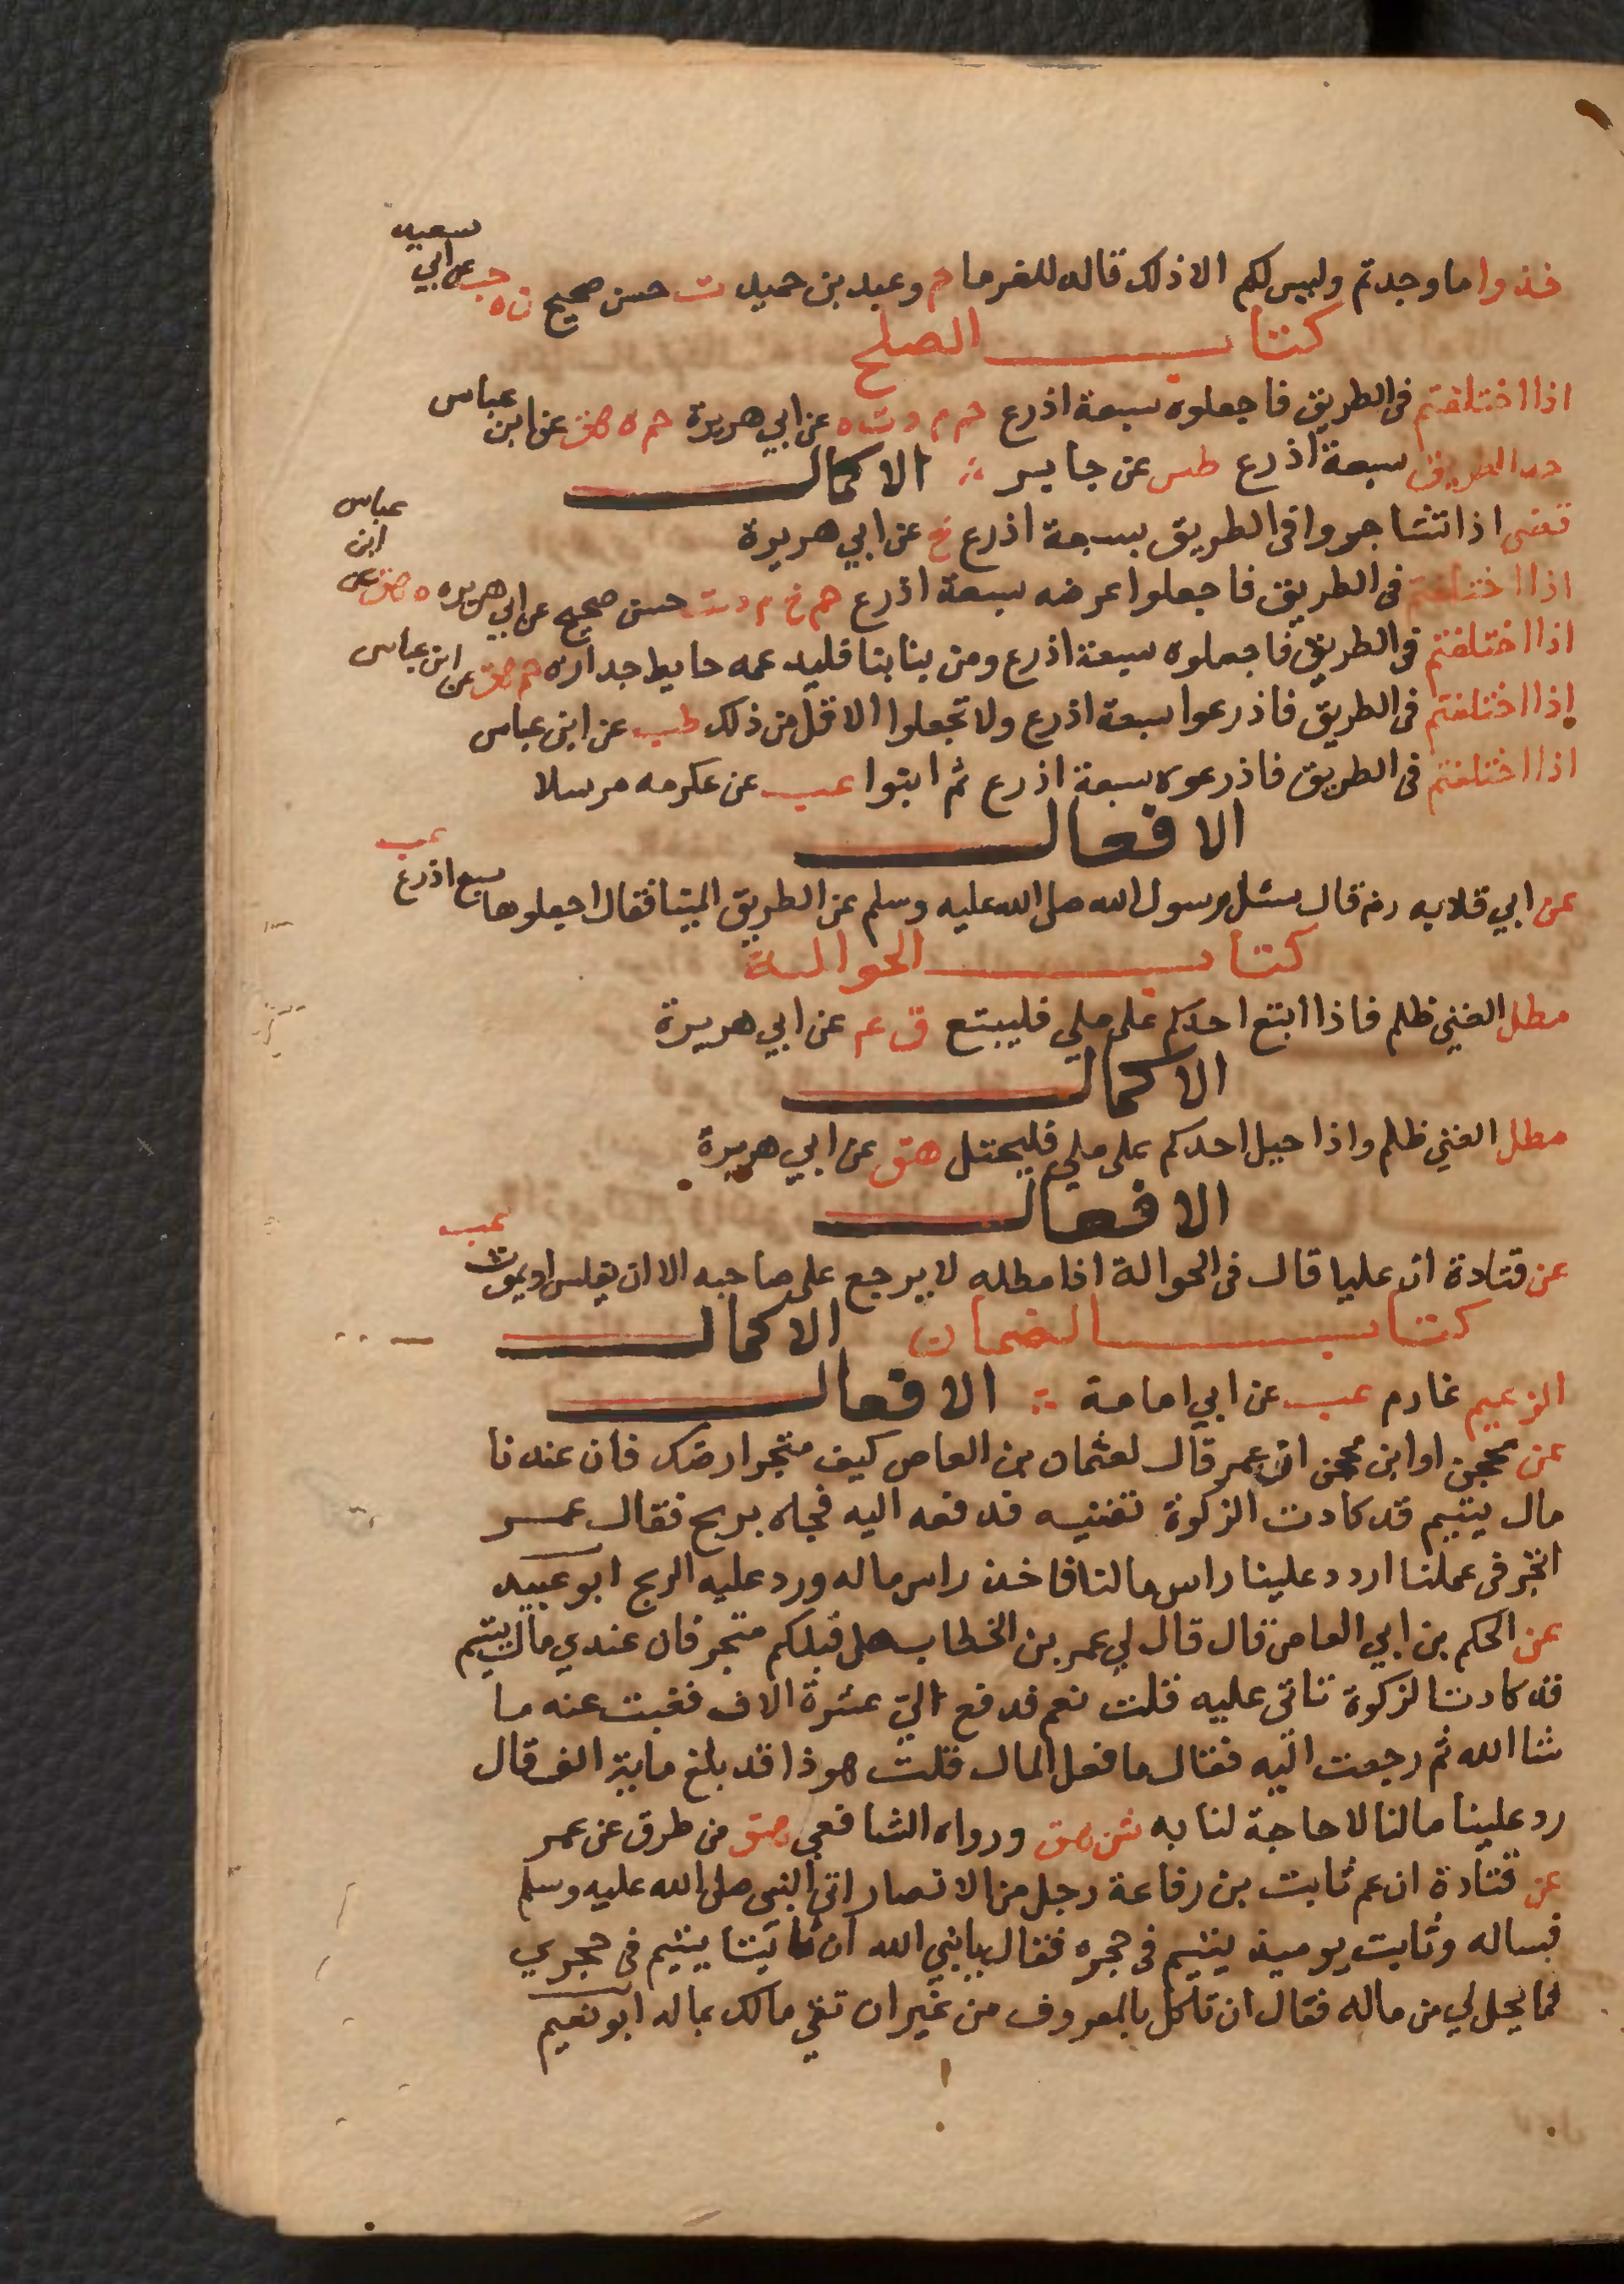 خذوا ما وجدتم وليس لكم الا ذلك قاله للغرما م وعبد بن حميد ت حسن صحيح ن ه حب عن ابي سعيد
كتاب الصلح
اذا اختلفتم فى الطريق فاجعلوه سبعة اذرع حم م د ت ه عن ابي هريرة حم ه هق عن ابن عباس
حد الطريق سبعة اذرع طس عن جابر الاكمال
قضى اذا تشاجروا فى الطريق بسبعة اذرع خ عن ابي هريرة
اذا اختلفتم فى الطريق فاجعلوا عرضه سبعة اذرع حم خ م د ت حسن صحيح عن ابي هريره ه هق عن ابن عباس
اذا اختلفتم فى الطريق فاجعلوه سبعة اذرع ومن بنا بنا فليدعمه حايط جداره حم هق عن ابن عباس
اذا اختلفتم فى الطريق فاذرعوا سبعة اذرع ولا تجعلوا الاقل من ذلك طب عن ابن عباس
اذا اختلفتم فى الطريق فاذرعوه سبعة اذرع ثم ابنوا عب عن عكرمه مرسلا
الافعال
عن ابي قلابه رض قال سئل رسول الله صلى الله عليه وسلم عن الطريق الميتا فقال اجعلوها سبع اذرع عب
كتاب الحوالة
مطل الغني ظلم فاذا اتبع احدكم على ملي فليتبع ق عم عن ابي هريرة
الاكمال
مطل الغني ظلم واذا حيل احدكم على ملي فليحتل هق عن ابي هريرة
الافعال
عن قتادة ان عليا قال فى الحوالة اذا مطله لا يرجع على صاحبه الا ان يفلس او يموت عب
كتاب الضمان الاكمال
الزعيم غارم عب عن ابي امامة الافعال
عن محجن او ابن محجن ان عمر قال لعثمان بن العاص كيف متجر ارضك فان عندنا
مال يتيم قد كادت الزكوة تفنيه فدفعه اليه فجاه بربح فقال عمر
اتجر فى عملنا اردد علينا راس مالنا فاخذ راس ماله ورد عليه الربح ابو عبيد
عن الحكم بن ابي العاص قال قال لي عمر بن الخطاب هل قبلكم متجر فان عندي مال يتيم
قد كادت الزكوة تاتى عليه قلت نعم فدفع الي عشرة الاف فغبت عنه ما
شا الله ثم رجعت اليه فقال ما فعل المال قلت هو ذا قد بلغ ماية الف قال
رد علينا مالنا لا حاجة لنا به ش هق ورواه الشافعي هق من طرق عن عمر
عن قتادة ان عم ثابت بن رفاعة رجل من الانصار اتى النبى صلى الله عليه وسلم
فساله وثابت يوميذ يتيم فى حجره فقال يا نبي الله ان ثابتا يتيم فى حجري
فما يحل لي من ماله فقال ان تاكل بالمعروف من غير ان تقي مالك بماله ابو نعيم